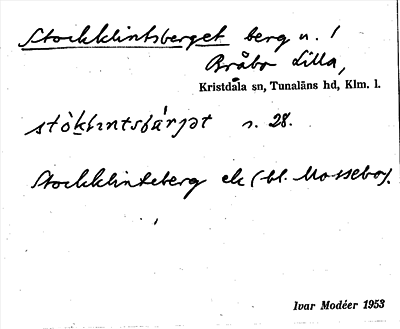 Stockklintsberget berg n. /
Bråbo Lilla,
Kristdala sn, Tunaläns hd, Klm. l.
s. 28.
Stockklinteberg ek (bl. Mossebo).
Ivar Modéer 1953